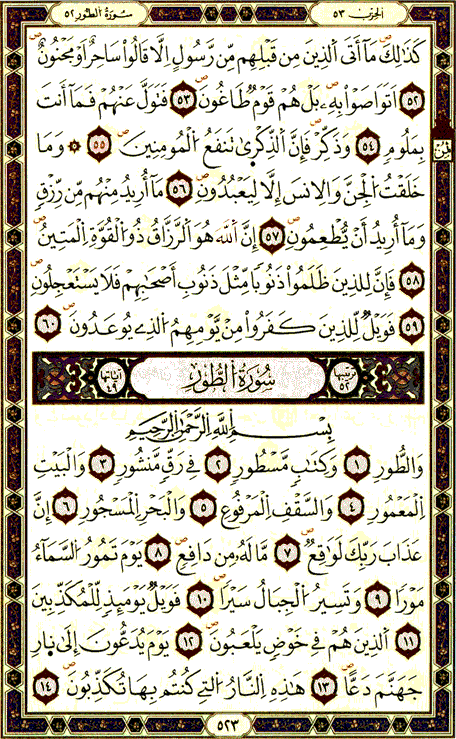 الحزب ٥٣
سُورَةُ الطُّورِ ٥٢
كَذَٰلِكَ مَآ أَتَى اَلذِينَ مِن قَبْلِهِم مِّن رَّسُولٍ اِلَّا قَالُواْ سَاحِرٌ اَوْ مَجْنُونٌ
٥٢ اَتَوَاصَوْاْ بِهِۦ بَلْ هُمْ قَوْمٌ طَاغُونَ ٥٣ فَتَوَلَّ عَنْهُمْ فَمَآ أَنتَ
بِمَلُومٍ ٥٤ وَذَكِّرْ فَإِنَّ اَلذِّكْرَىٰ تَنفَعُ اُلْمُومِنِينَ ٥٥ ۞ وَمَا
ثمن
خَلَقْتُ اُلْجِنَّ وَالِانسَ إِلَّا لِيَعْبُدُونِ ٥٦ مَآ أُرِيدُ مِنْهُم مِّن رِّزْقٍ
وَمَآ أُرِيدُ أَنْ يُّطْعِمُونِ ٥٧ إِنَّ اَللَّهَ هُوَ اَلرَّزَّاقُ ذُو اُلْقُوَّةِ اِلْمَتِينُ
٥٨ فَإِنَّ لِلذِينَ ظَلَمُواْ ذَنُوبًا مِّثْلَ ذَنُوبِ أَصْحَٰبِهِمْ فَلَا يَسْتَعْجِلُونِ
٥٩ فَوَيْلٌ لِّلذِينَ كَفَرُواْ مِنْ يَّوْمِهِمُ اُلذِے يُوعَدُونَ ٦٠
ترتيبها ٥٢ سُورَةُ الطُّورِ آياتها ٤٩
بِسْمِ اِللَّهِ اِلرَّحْمَٰنِ اِلرَّحِيمِ
وَالطُّورِ ١ وَكِتَٰبٍ مَّسْطُورٍ ٢ فِے رَقٍّ مَّنشُورٍ ٣ وَالْبَيْتِ
اِلْمَعْمُورِ ٤ وَالسَّقْفِ اِلْمَرْفُوعِ ٥ وَالْبَحْرِ اِلْمَسْجُورِ ٦ إِنَّ
عَذَابَ رَبِّكَ لَوَٰقِعٌ ٧ مَّا لَهُۥ مِن دَافِعٍ ٨ يَوْمَ تَمُورُ اُلسَّمَآءُ
مَوْرًا ٩ وَتَسِيرُ اُلْجِبَالُ سَيْرًا ١٠ فَوَيْلٌ يَوْمَئِذٍ لِّلْمُكَذِّبِينَ
١١ اَلذِينَ هُمْ فِے خَوْضٍ يَلْعَبُونَ ١٢ يَوْمَ يُدَعُّونَ إِلَىٰ نَارِ
جَهَنَّمَ دَعًّا ١٣ هَٰذِهِ اِلنَّارُ اُلتِے كُنتُم بِهَا تُكَذِّبُونَ ١٤
٥٢٣